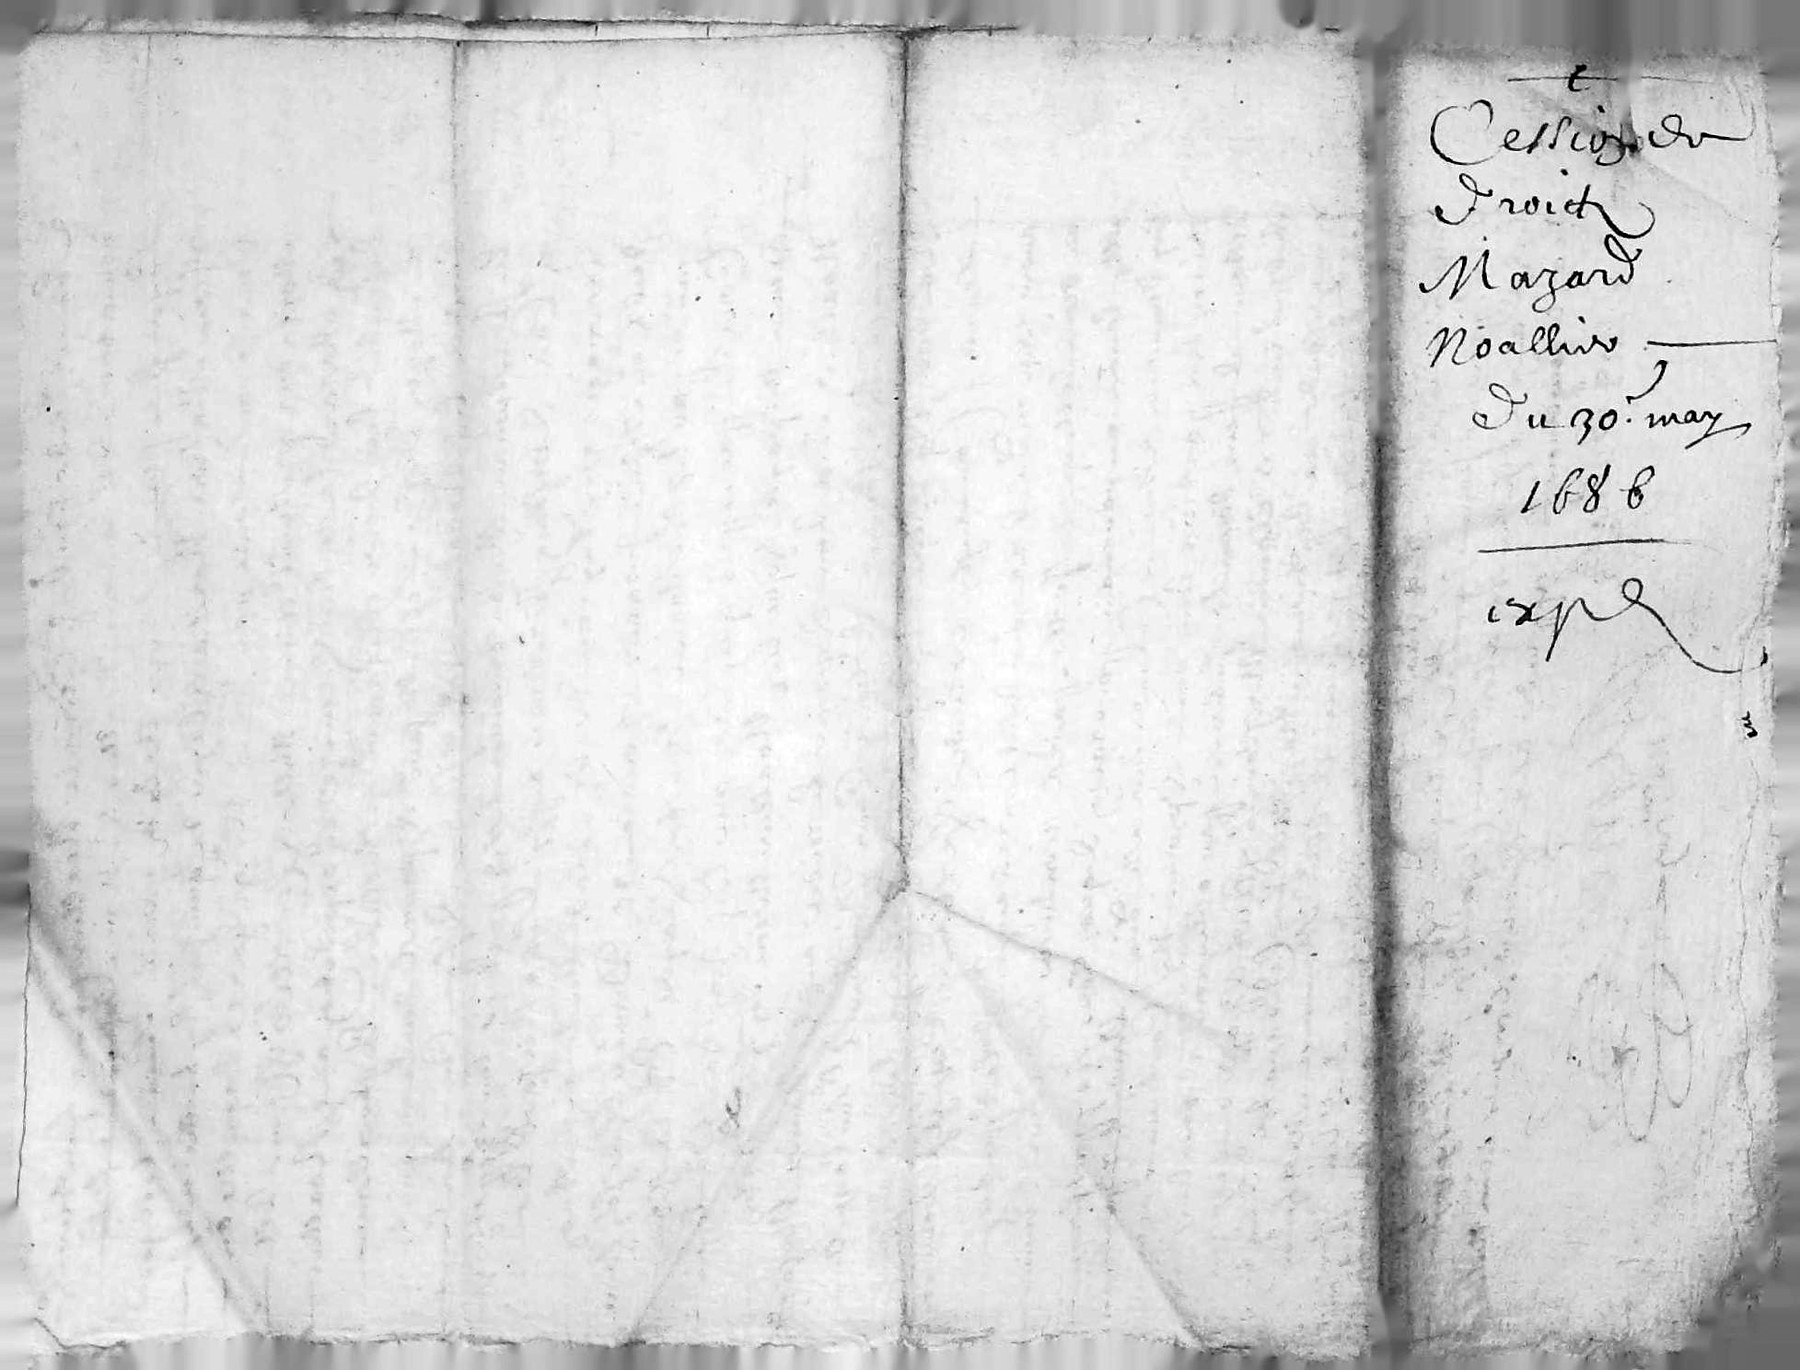 Cession de
droictz
Mazard
Noallier
du 30.e may
1686
exp